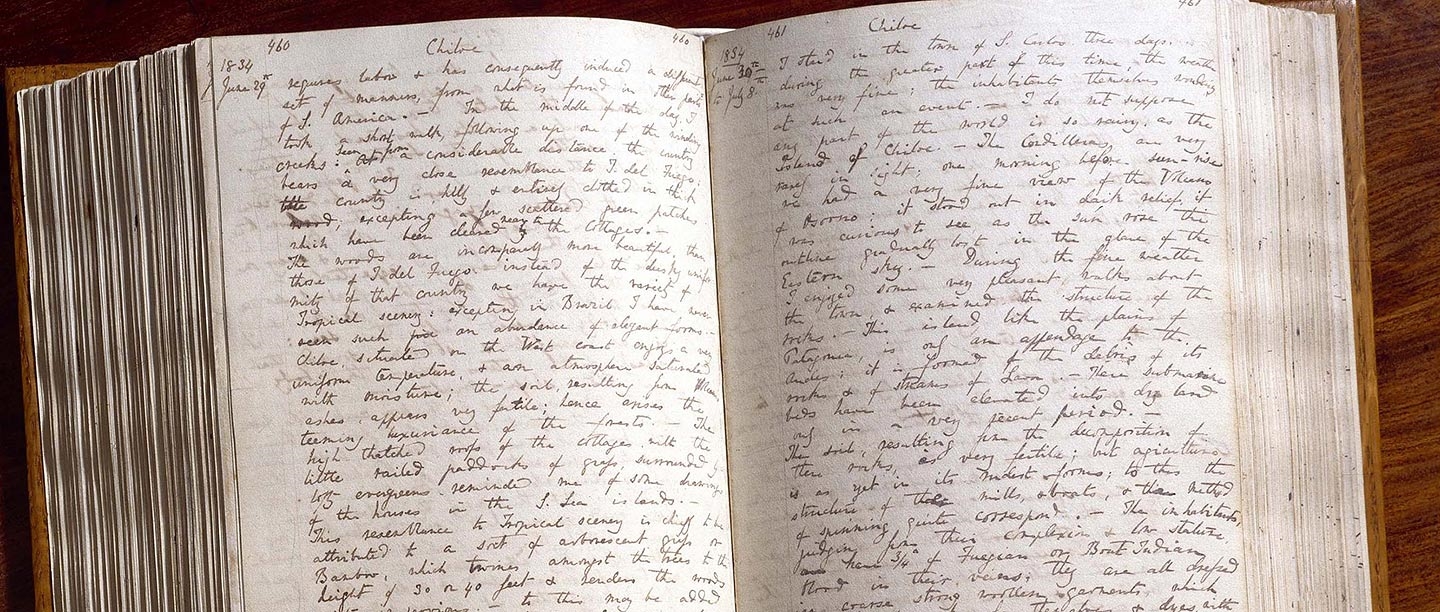 460
Chiloe
460
1834
June 29th
requires labor & has consequently induced a different
set of manners, from what is found in other parts
of S. America. — In the middle of the day I
took a short walk, following up one of the winding
creeks: Seen from a considerable distance the country
bears a very close resemblance to T. del Fuego:
the country is hilly & entirely clothed in thick
wood, excepting a few scattered green patches
which have been cleared near to the cottages. —
The woods are incomparably more beautiful than
those of T. del Fuego, instead of the dusky unifor
mity of that country we have the variety of
Tropical scenery: excepting in Brazil I have never
seen such an abundance of elegant forms. —
Chiloe, situated on the West coast enjoys a very
uniform temperature, & an atmosphere saturated
with moisture; the soil resulting from Volcanic
ashes, appears very fertile; hence arises the
teeming luxuriance of the forests. — The
high thatched roofs of the cottages, with the
little railed paddocks of grass, surrounded by
lofty evergreens reminded me of some drawings
of the houses in the S. Sea islands. —
This resemblance to Tropical scenery is chiefly to be
attributed to a sort of arborescent grass or
Bamboo, which twines amongst the trees to the
height of 30 or 40 feet & renders the woods
to this may be added
461
Chiloe
461
1834
June 30th
to July 8th
I staid in the town of S. Carlos three days.
during the greater part of this time, the weather
was very fine; the inhabitants themselves wondering
at such an event. — I do not suppose
any part of the world is so rainy as the
Island of Chiloe. — The Cordilleras are very
rarely in sight; one morning before sun-rise
we had a very fine view of the Volcano
of Osorno; it stood out in dark relief; it
was curious to see as the sun rose the
outline gradually lost in the glare of the
Eastern sky. — During the fine weather
I enjoyed some very pleasant walks about
the town, & examined the structure of the
rocks. — This island, like the plains of
Patagonia, is only an appendage to the
Andes; it is formed of the debris of its
rocks & of streams of Lava. — These submarine
beds have been elevated into dry land
only in a very recent period. —
The soil, resulting from the decomposition of
these rocks, is very fertile; but agriculture
is as yet in its rudest forms; to this the
structure of the mills, boats, & the method
of spinning quite correspond. — The inhabitants,
judging from their complexion & low stature
have 3/4 of Fuegian or Boat Indian
blood in their veins; they are all dressed
in coarse strong woollen garments, which
themselves & dyes with